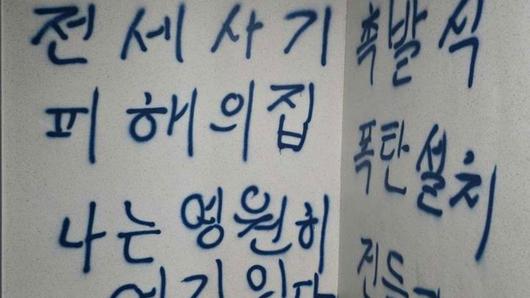 전세사기
피해의집
나는 영원히
여기있다
폭탄설치